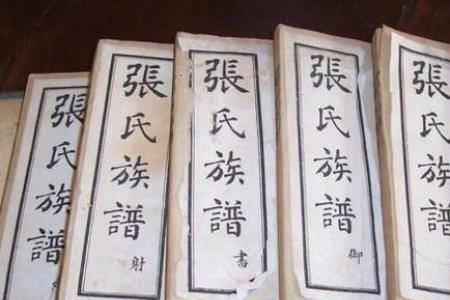 張氏族譜
張氏族譜
射
張氏族譜
書
張氏族譜
御
張氏族譜